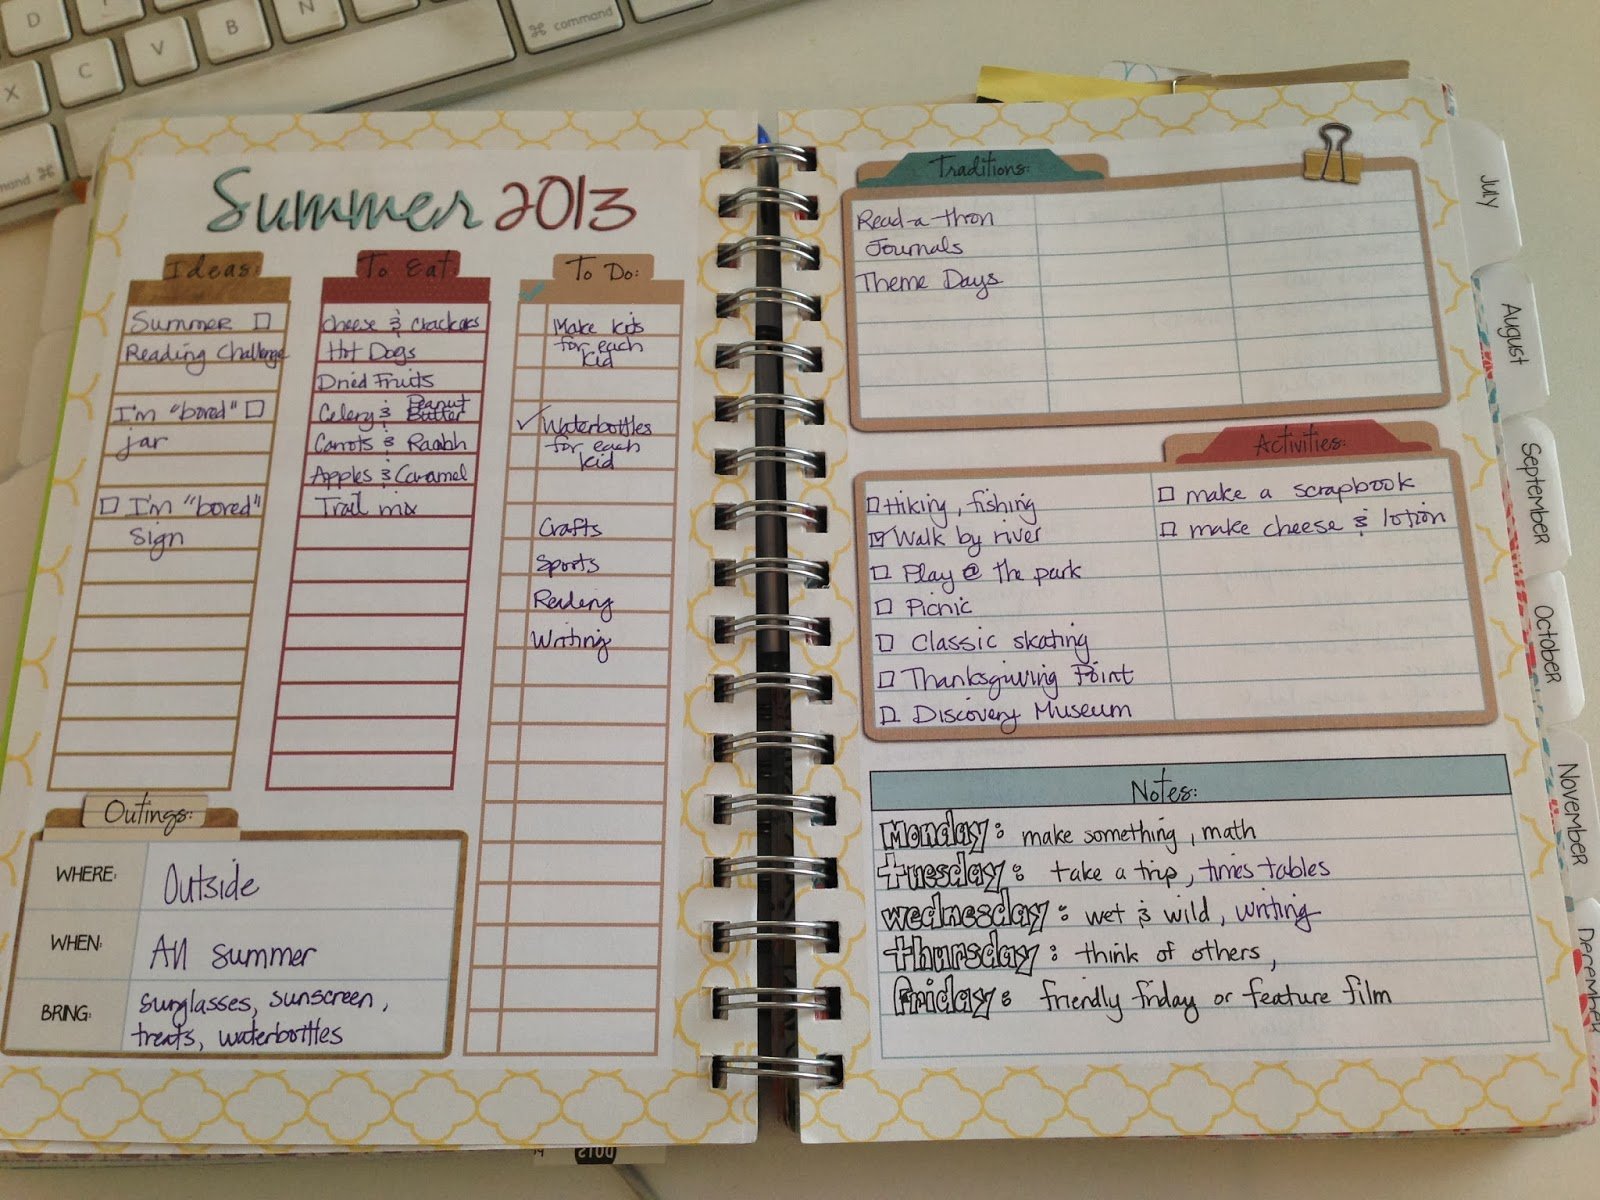 D
X
C
V
B
N
⌘ command
mand ⌘
Summer 2013
Ideas:
Summer
Reading Challenge
I'm "bored"
jar
I'm "bored"
Sign
To Eat:
Cheese & Crackers
Hot Dogs
Dried Fruits
Celery & Peanut
Butter
Carrots & Raabh
Apples & Caramel
Trail mix
To Do:
Make kits
for each
kid
Waterbottles
for each
kid
Crafts
Sports
Reading
Writing
Outings:
WHERE: Outside
WHEN: All summer
BRING: Sunglasses, sunscreen,
treats, waterbottles
Traditions:
Read-a-thon
Journals
Theme Days
Activities:
Hiking, fishing
Walk by river
Play @ the park
Picnic
Classic skating
Thanksgiving Point
Discovery Museum
make a scrapbook
make cheese & lotion
Notes:
Monday: make something, math
tuesday: take a trip, times tables
wednesday: wet & wild, writing
thursday: think of others,
friday: friendly friday or feature film
July
August
September
October
November
December